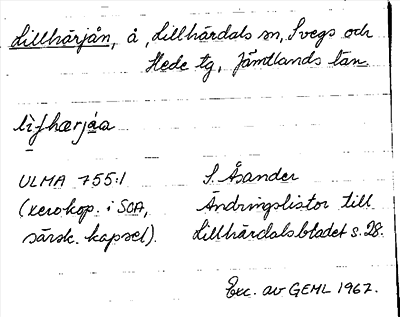 Lillhärjån, å, Lillhärdals sn, Svegs och
Hede tg, Jämtlands län
lìfhærjáa
ULMA 755:1 S. Åsander
(xerokop. i SOA, Ändringslistor till
särsk. kapsel). Lillhärdalsbladet s. 28.
Exc. av GEHL 1967.